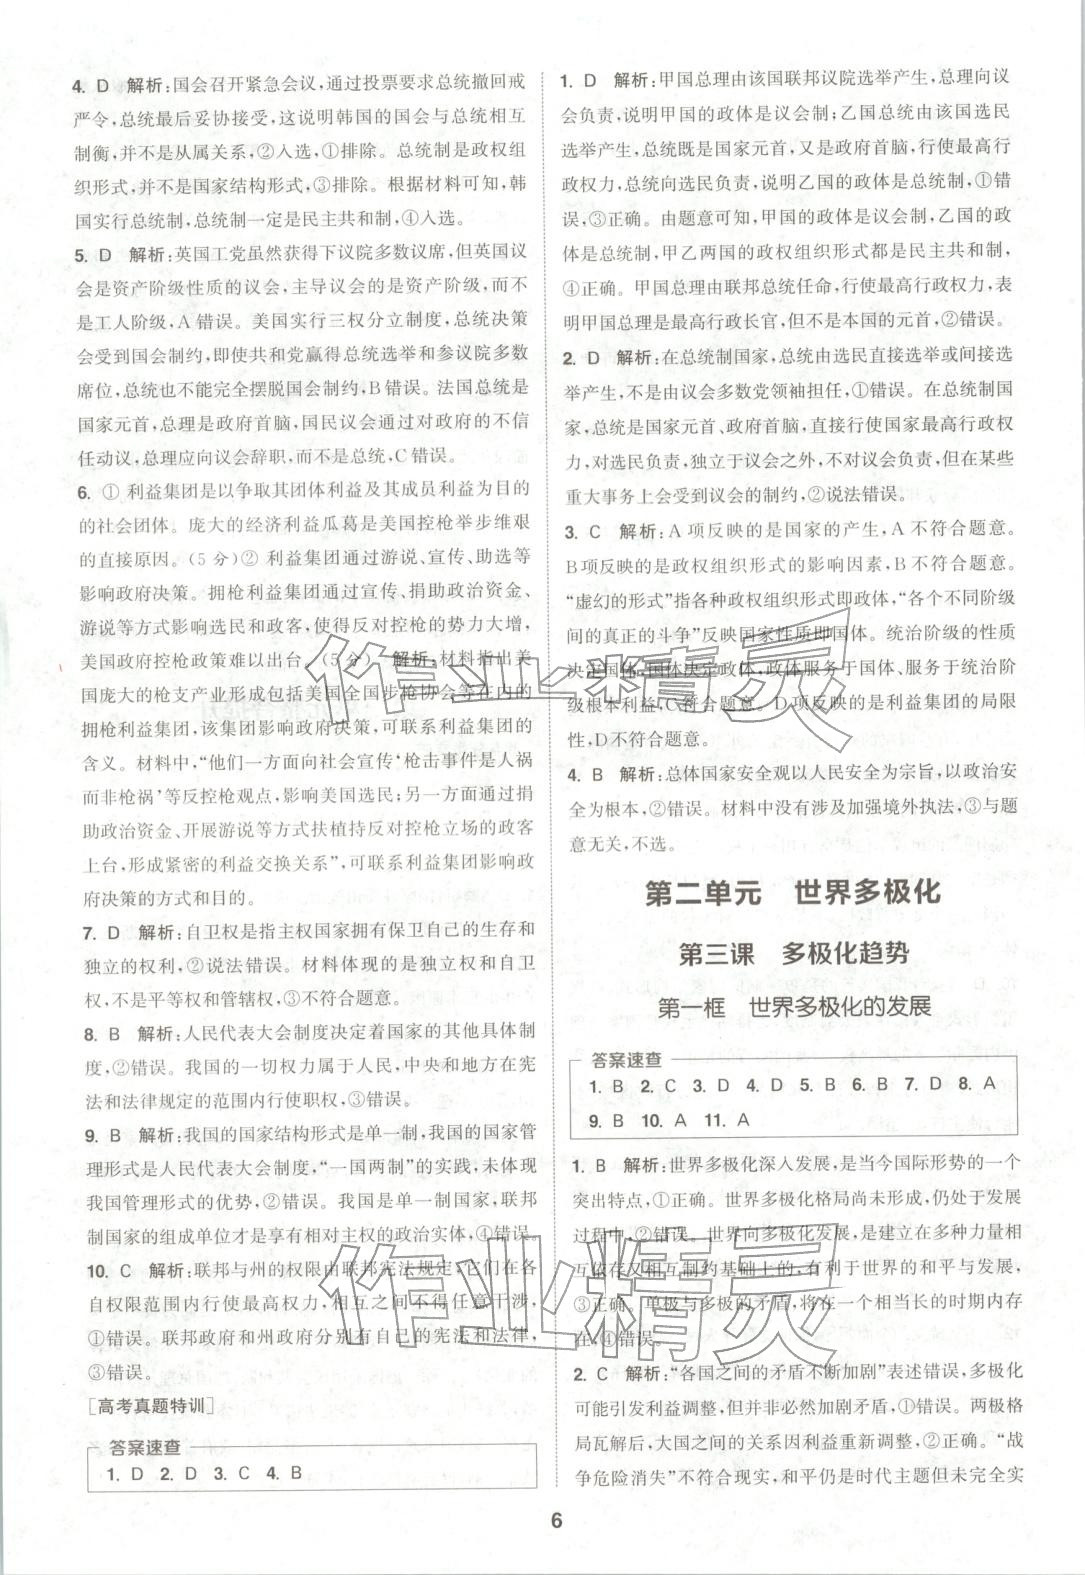 4. D　解析:国会召开紧急会议,通过投票要求总统撤回戒
严令,总统最后妥协接受,这说明韩国的国会与总统相互
制衡,并不是从属关系,②入选,①排除。总统制是政权组
织形式,并不是国家结构形式,③排除。根据材料可知,韩
国实行总统制,总统制一定是民主共和制,④入选。
5. D　解析:英国工党虽然获得下议院多数议席,但英国议
会是资产阶级性质的议会,主导议会的是资产阶级,而不
是工人阶级,A错误。美国实行三权分立制度,总统决策
会受到国会制约,即使共和党赢得总统选举和参议院多数
席位,总统也不能完全摆脱国会制约,B错误。法国总统是
国家元首,总理是政府首脑,国民议会通过对政府的不信
任动议,总理应向议会辞职,而不是总统,C错误。
6. ① 利益集团是以争取其团体利益及其成员利益为目的
的社会团体。庞大的经济利益瓜葛是美国控枪举步维艰
的直接原因。(5分)② 利益集团通过游说、宣传、助选等
影响政府决策。拥枪利益集团通过宣传、捐助政治资金、
游说等方式影响选民和政客,使得反对控枪的势力大增,
美国政府控枪政策难以出台。(5分)　解析:材料指出美
国庞大的枪支产业形成包括美国全国步枪协会等在内的
拥枪利益集团,该集团影响政府决策,可联系利益集团的
含义。材料中,“他们一方面向社会宣传‘枪击事件是人祸
而非枪祸’等反控枪观点,影响美国选民;另一方面通过捐
助政治资金、开展游说等方式扶植持反对控枪立场的政客
上台,形成紧密的利益交换关系”,可联系利益集团影响政
府决策的方式和目的。
7. D　解析:自卫权是指主权国家拥有保卫自己的生存和
独立的权利,②说法错误。材料体现的是独立权和自卫
权,不是平等权和管辖权,③不符合题意。
8. B　解析:人民代表大会制度决定着国家的其他具体制
度,②错误。我国的一切权力属于人民,中央和地方在宪
法和法律规定的范围内行使职权,③错误。
9. B　解析:我国的国家结构形式是单一制,我国的国家管
理形式是人民代表大会制度,“一国两制”的实践,未体现
我国管理形式的优势,②错误。我国是单一制国家,联邦
制国家的组成单位才是享有相对主权的政治实体,④错误。
10. C　解析:联邦与州的权限由联邦宪法规定,它们在各
自权限范围内行使最高权力,相互之间不得任意干涉,
①错误。联邦政府和州政府分别有自己的宪法和法律,
③错误。
[高考真题特训]
答案速查
1. D　2. D　3. C　4. B
1. D　解析:甲国总理由该国联邦议院选举产生,总理向议
会负责,说明甲国的政体是议会制;乙国总统由该国选民
选举产生,总统既是国家元首,又是政府首脑,行使最高行
政权力,总统向选民负责,说明乙国的政体是总统制,①错
误,③正确。由题意可知,甲国的政体是议会制,乙国的政
体是总统制,甲乙两国的政权组织形式都是民主共和制,
④正确。甲国总理由联邦总统任命,行使最高行政权力,表
明甲国总理是最高行政长官,但不是本国的元首,②错误。
2. D　解析:在总统制国家,总统由选民直接选举或间接选
举产生,不是由议会多数党领袖担任,①错误。在总统制国
家,总统是国家元首、政府首脑,直接行使国家最高行政权
力,对选民负责,独立于议会之外,不对议会负责,但在某些
重大事务上会受到议会的制约,②说法错误。
3. C　解析:A项反映的是国家的产生,A不符合题意。
B项反映的是政权组织形式的影响因素,B不符合题意。
“虚幻的形式”指各种政权组织形式即政体,“各个不同阶级
间的真正的斗争”反映国家性质即国体。统治阶级的性质
决定国体,国体决定政体,政体服务于国体、服务于统治阶
级根本利益,C符合题意。D项反映的是利益集团的局限
性,D不符合题意。
4. B　解析:总体国家安全观以人民安全为宗旨,以政治安
全为根本,②错误。材料中没有涉及加强境外执法,③与题
意无关,不选。
第二单元　世界多极化
第三课　多极化趋势
第一框　世界多极化的发展
答案速查
1. B　2. C　3. D　4. D　5. B　6. B　7. D　8. A
9. B　10. A　11. A
1. B　解析:世界多极化深入发展,是当今国际形势的一个
突出特点,①正确。世界多极化格局尚未形成,仍处于发展
过程中,②错误。世界向多极化发展,是建立在多种力量相
互依存又相互制约基础上的,有利于世界的和平与发展,
③正确。单极与多极的矛盾,将在一个相当长的时期内存
在,④错误。
2. C　解析:“各国之间的矛盾不断加剧”表述错误,多极化
可能引发利益调整,但并非必然加剧矛盾,①错误。两极格
局瓦解后,大国之间的关系因利益重新调整,②正确。“战
争危险消失”不符合现实,和平仍是时代主题但未完全实
6
作业精灵
作业精灵